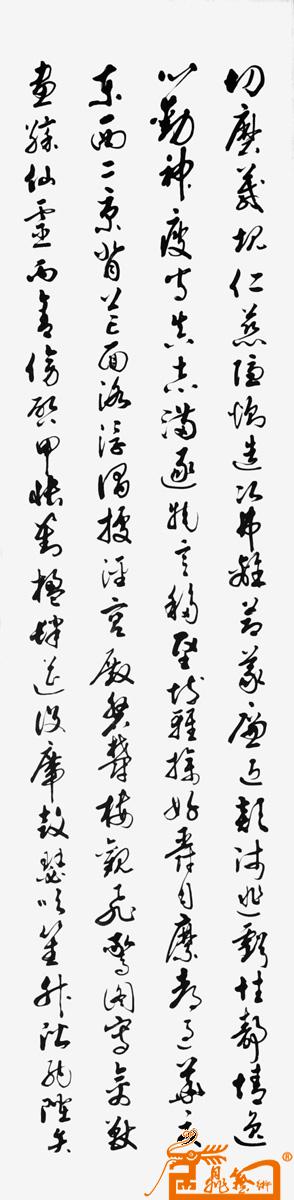 切磨箴規仁慈隱惻造次弗離節義廉退顛沛匪虧性静情逸
心動神疲守真志滿逐物意移堅持雅操好爵自縻都邑華夏
東西二京背芒面洛浮渭據涇宮殿盤鬱樓觀飛驚圖寫禽獸
畫綵仙靈丙舍傍啓甲帳對楹肆筵設席鼓瑟吹笙升階納陛弁
藝術